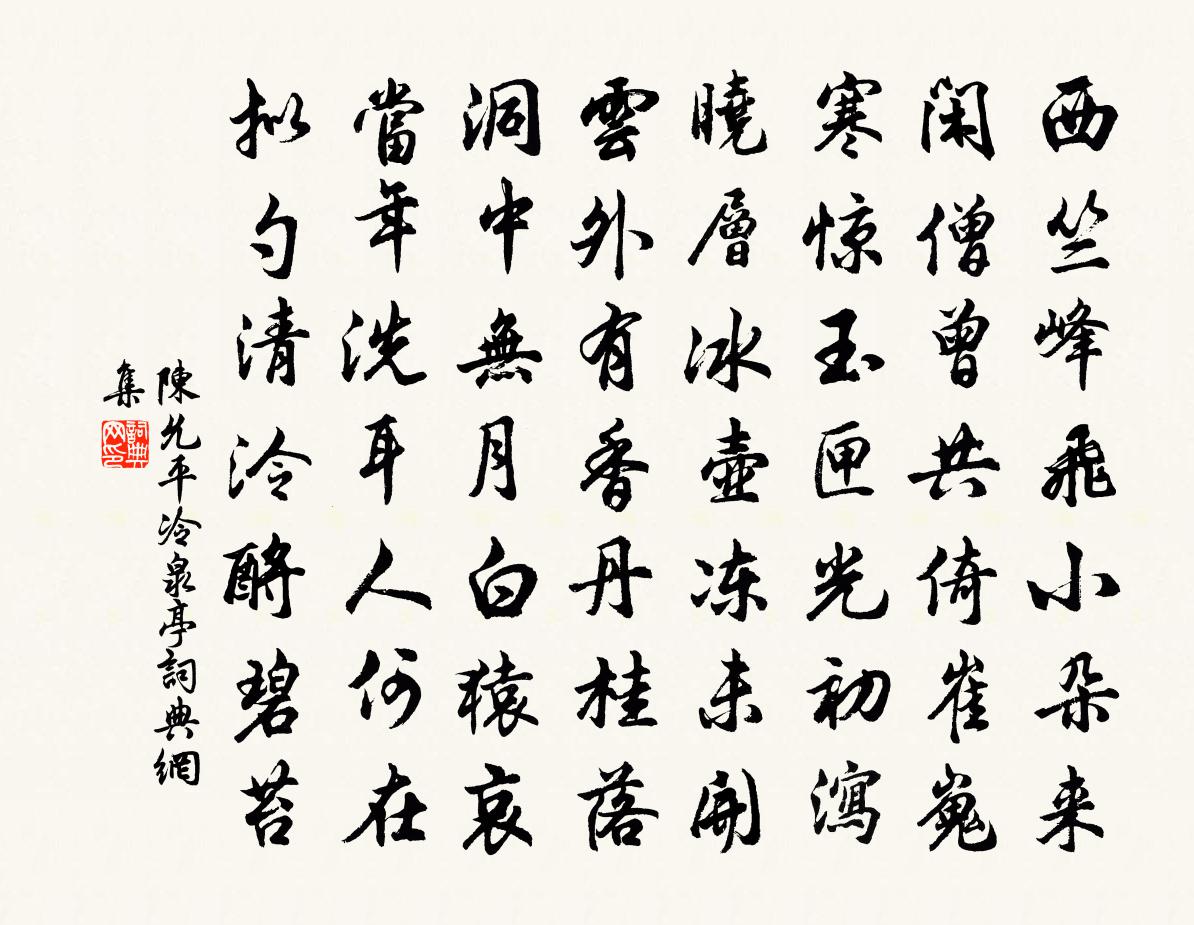 西竺峰飛小朵来
閑僧曾共倚崔嵬
寒惊玉匣光初瀉
曉層冰壺冻未開
雲外有香丹桂落
洞中無月白猿哀
當年洗耳人何在
拟勺清泠酹碧苔
陳允平冷泉亭詞典網
集
詞典
网印